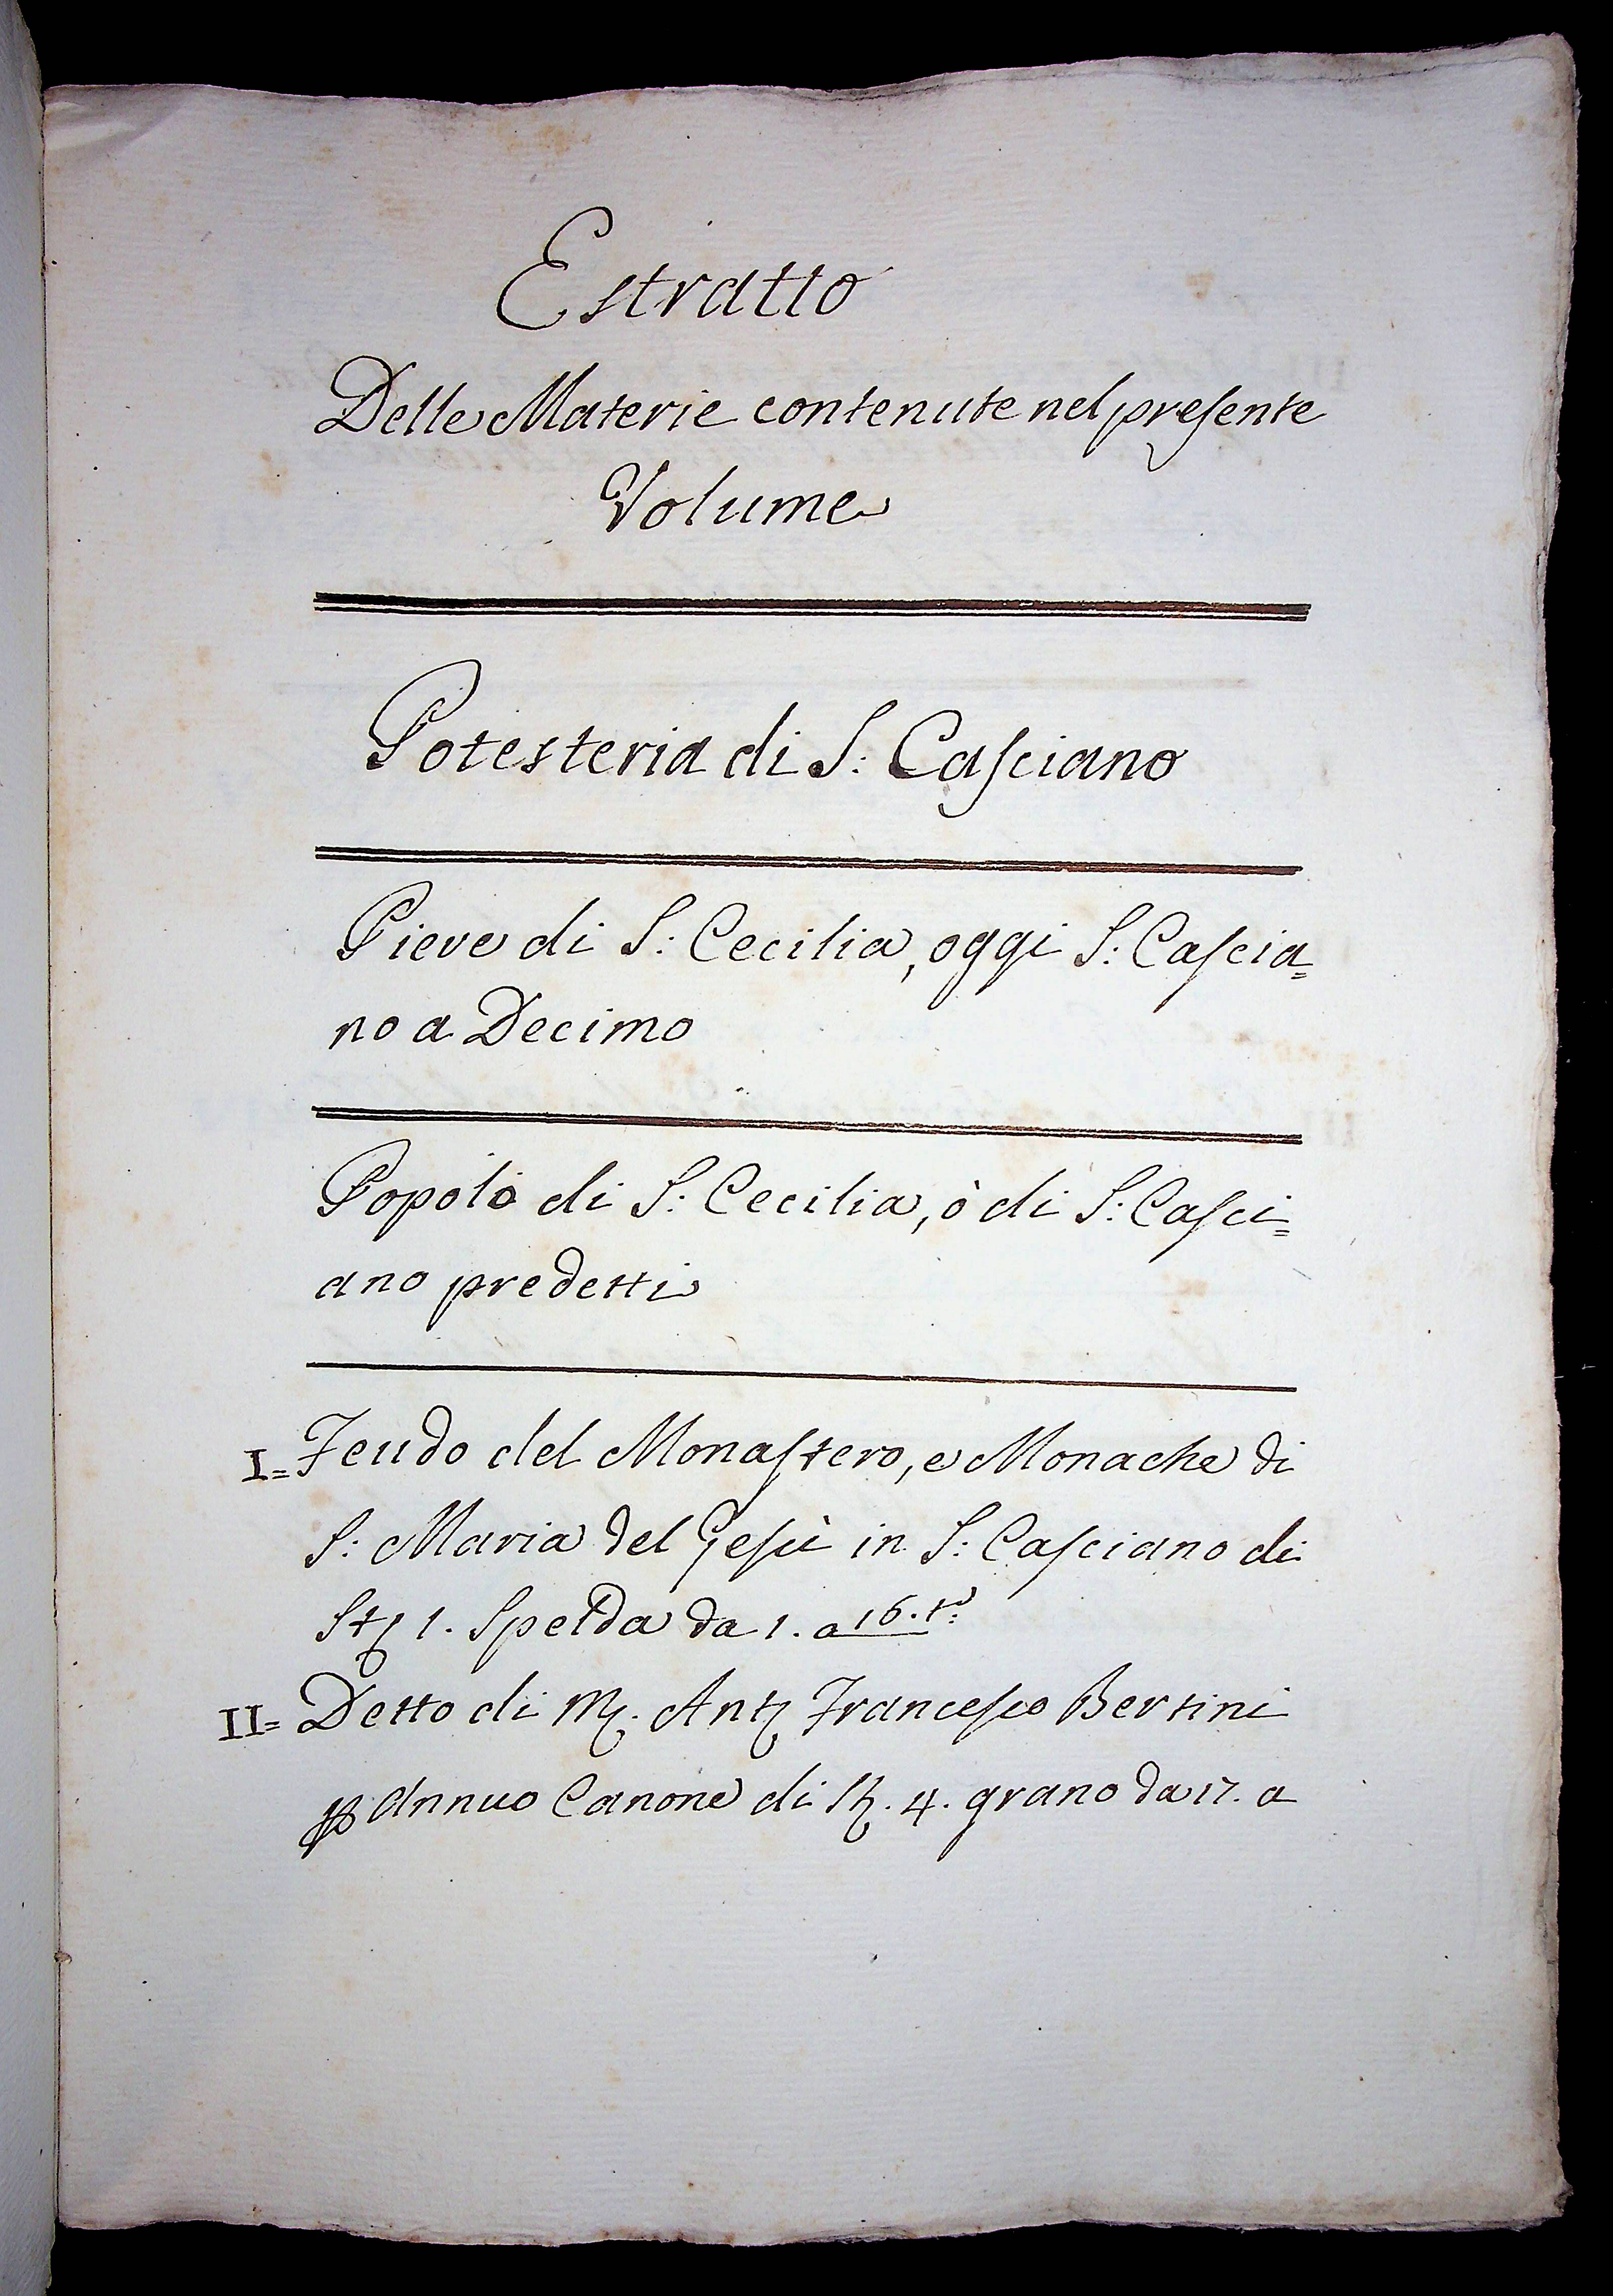 Estratto
Delle Materie contenute nel presente
Volume
Potesteria di S: Casciano
Pieve di S: Cecilia, oggi S: Cascia=
no a Decimo
Popolo di S: Cecilia, ò di S: Casci=
ano predetti
I= Feudo del Monastero, e Monache di
S: Maria del Gesù in S: Casciano di
1. Spelda da 1. a 16. t.º
II= Detto di Francesco Bertini
Annuo Canone di 4. grano da 17. a